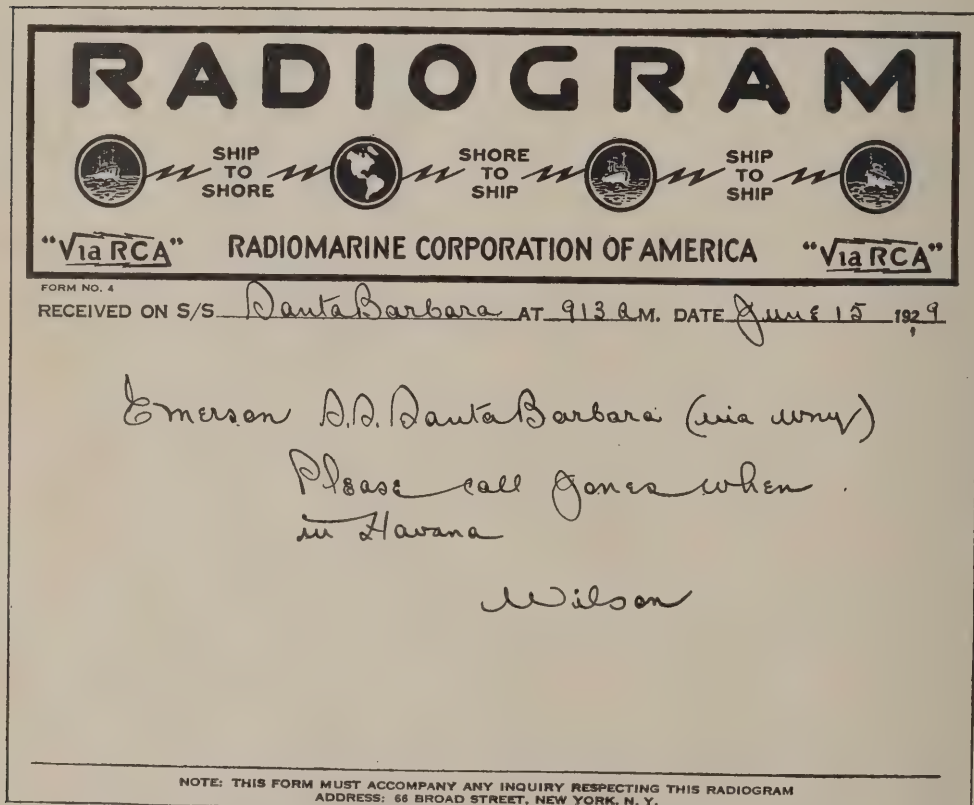 RADIOGRAM
SHIP TO SHORE
SHORE TO SHIP
SHIP TO SHIP
"Via RCA" RADIOMARINE CORPORATION OF AMERICA "Via RCA"
FORM NO. 4
RECEIVED ON S/S Santa Barbara AT 913 AM. DATE June 15 1929
Emerson S.S. Santa Barbara (via wny)
Please call Jones when
in Havana
Wilson
NOTE: THIS FORM MUST ACCOMPANY ANY INQUIRY RESPECTING THIS RADIOGRAM
ADDRESS: 66 BROAD STREET, NEW YORK, N. Y.